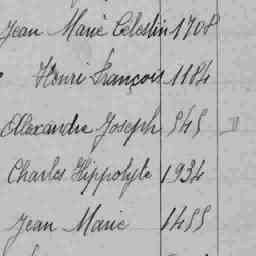 Jean Marie Célestin 1708
Henri François 1184
Alexandre Joseph 545
Charles Hippolyte 1934
Jean Marie 1455